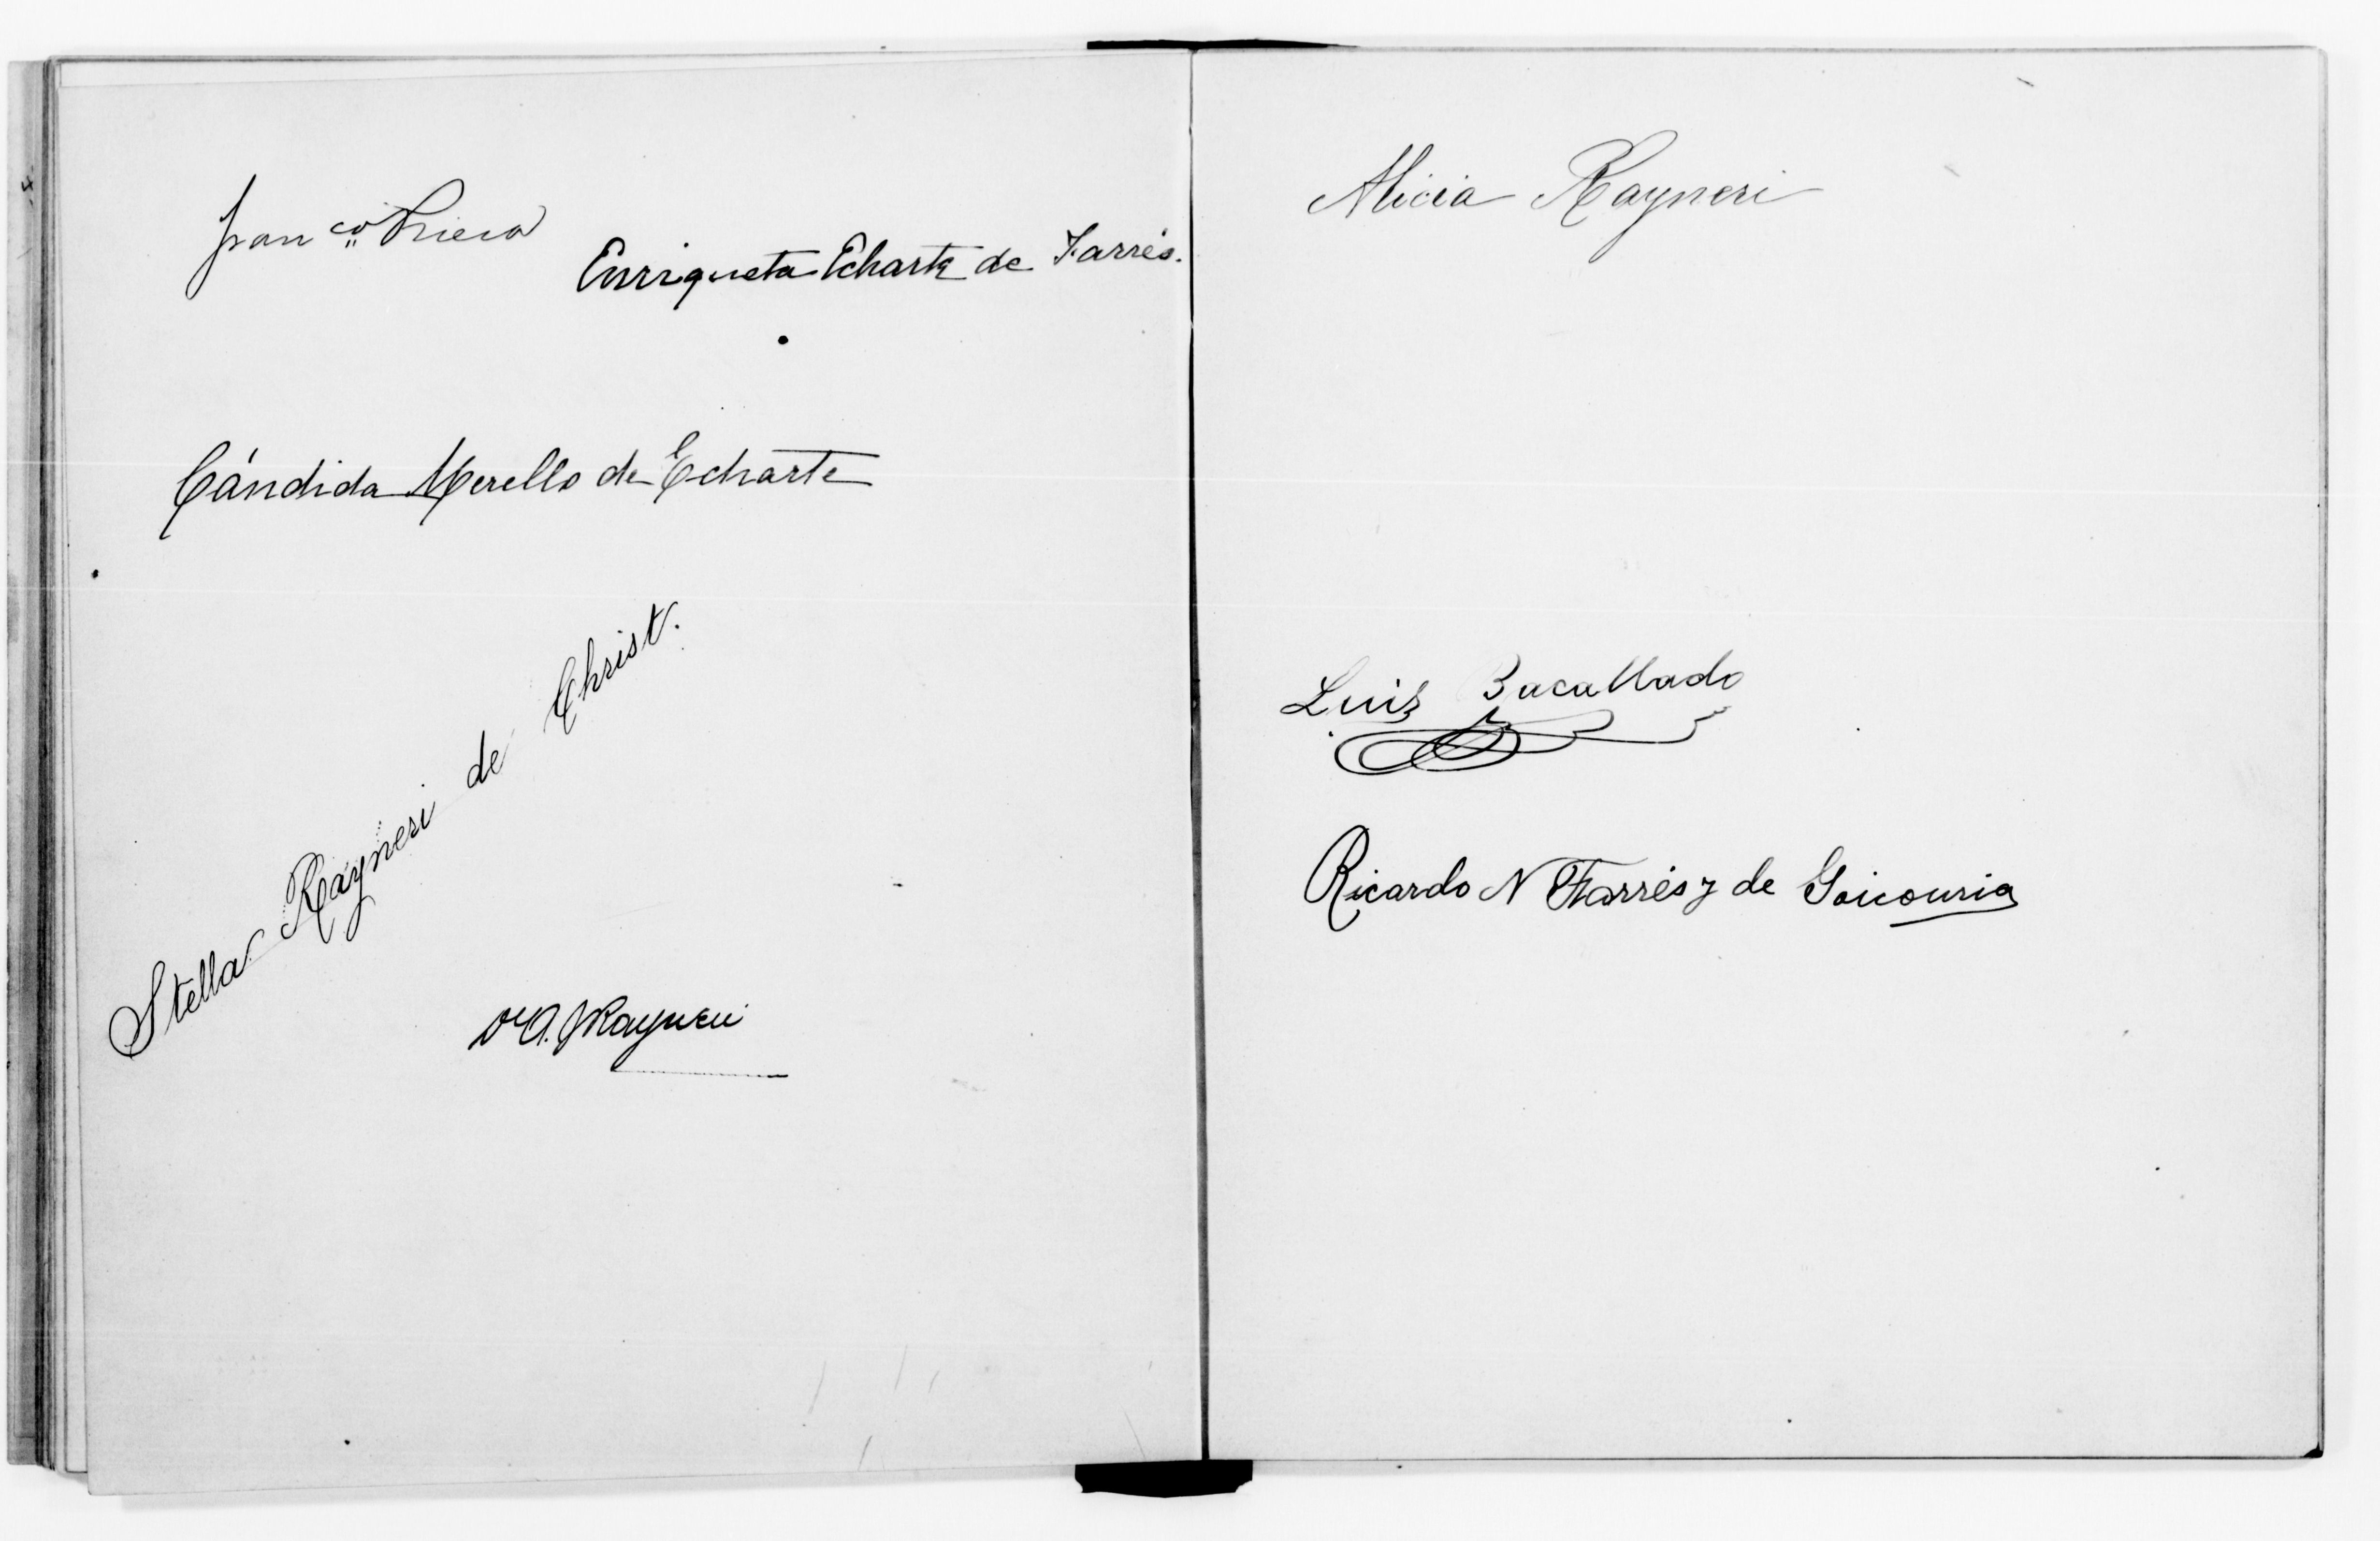 Franco Riera
Enriqueta Echarte de Farrés.
Cándida Merello de Echarte
Stella Rayneri de Christ.
Dr A. Rayneri
Alicia Rayneri
Luis Bacallado
Ricardo N Farrés y de Goicouria